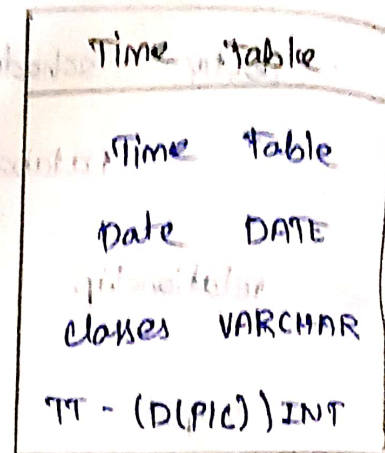 Time Table
Time Table
Date DATE
classes VARCHAR
TT - (D(PIC)) INT